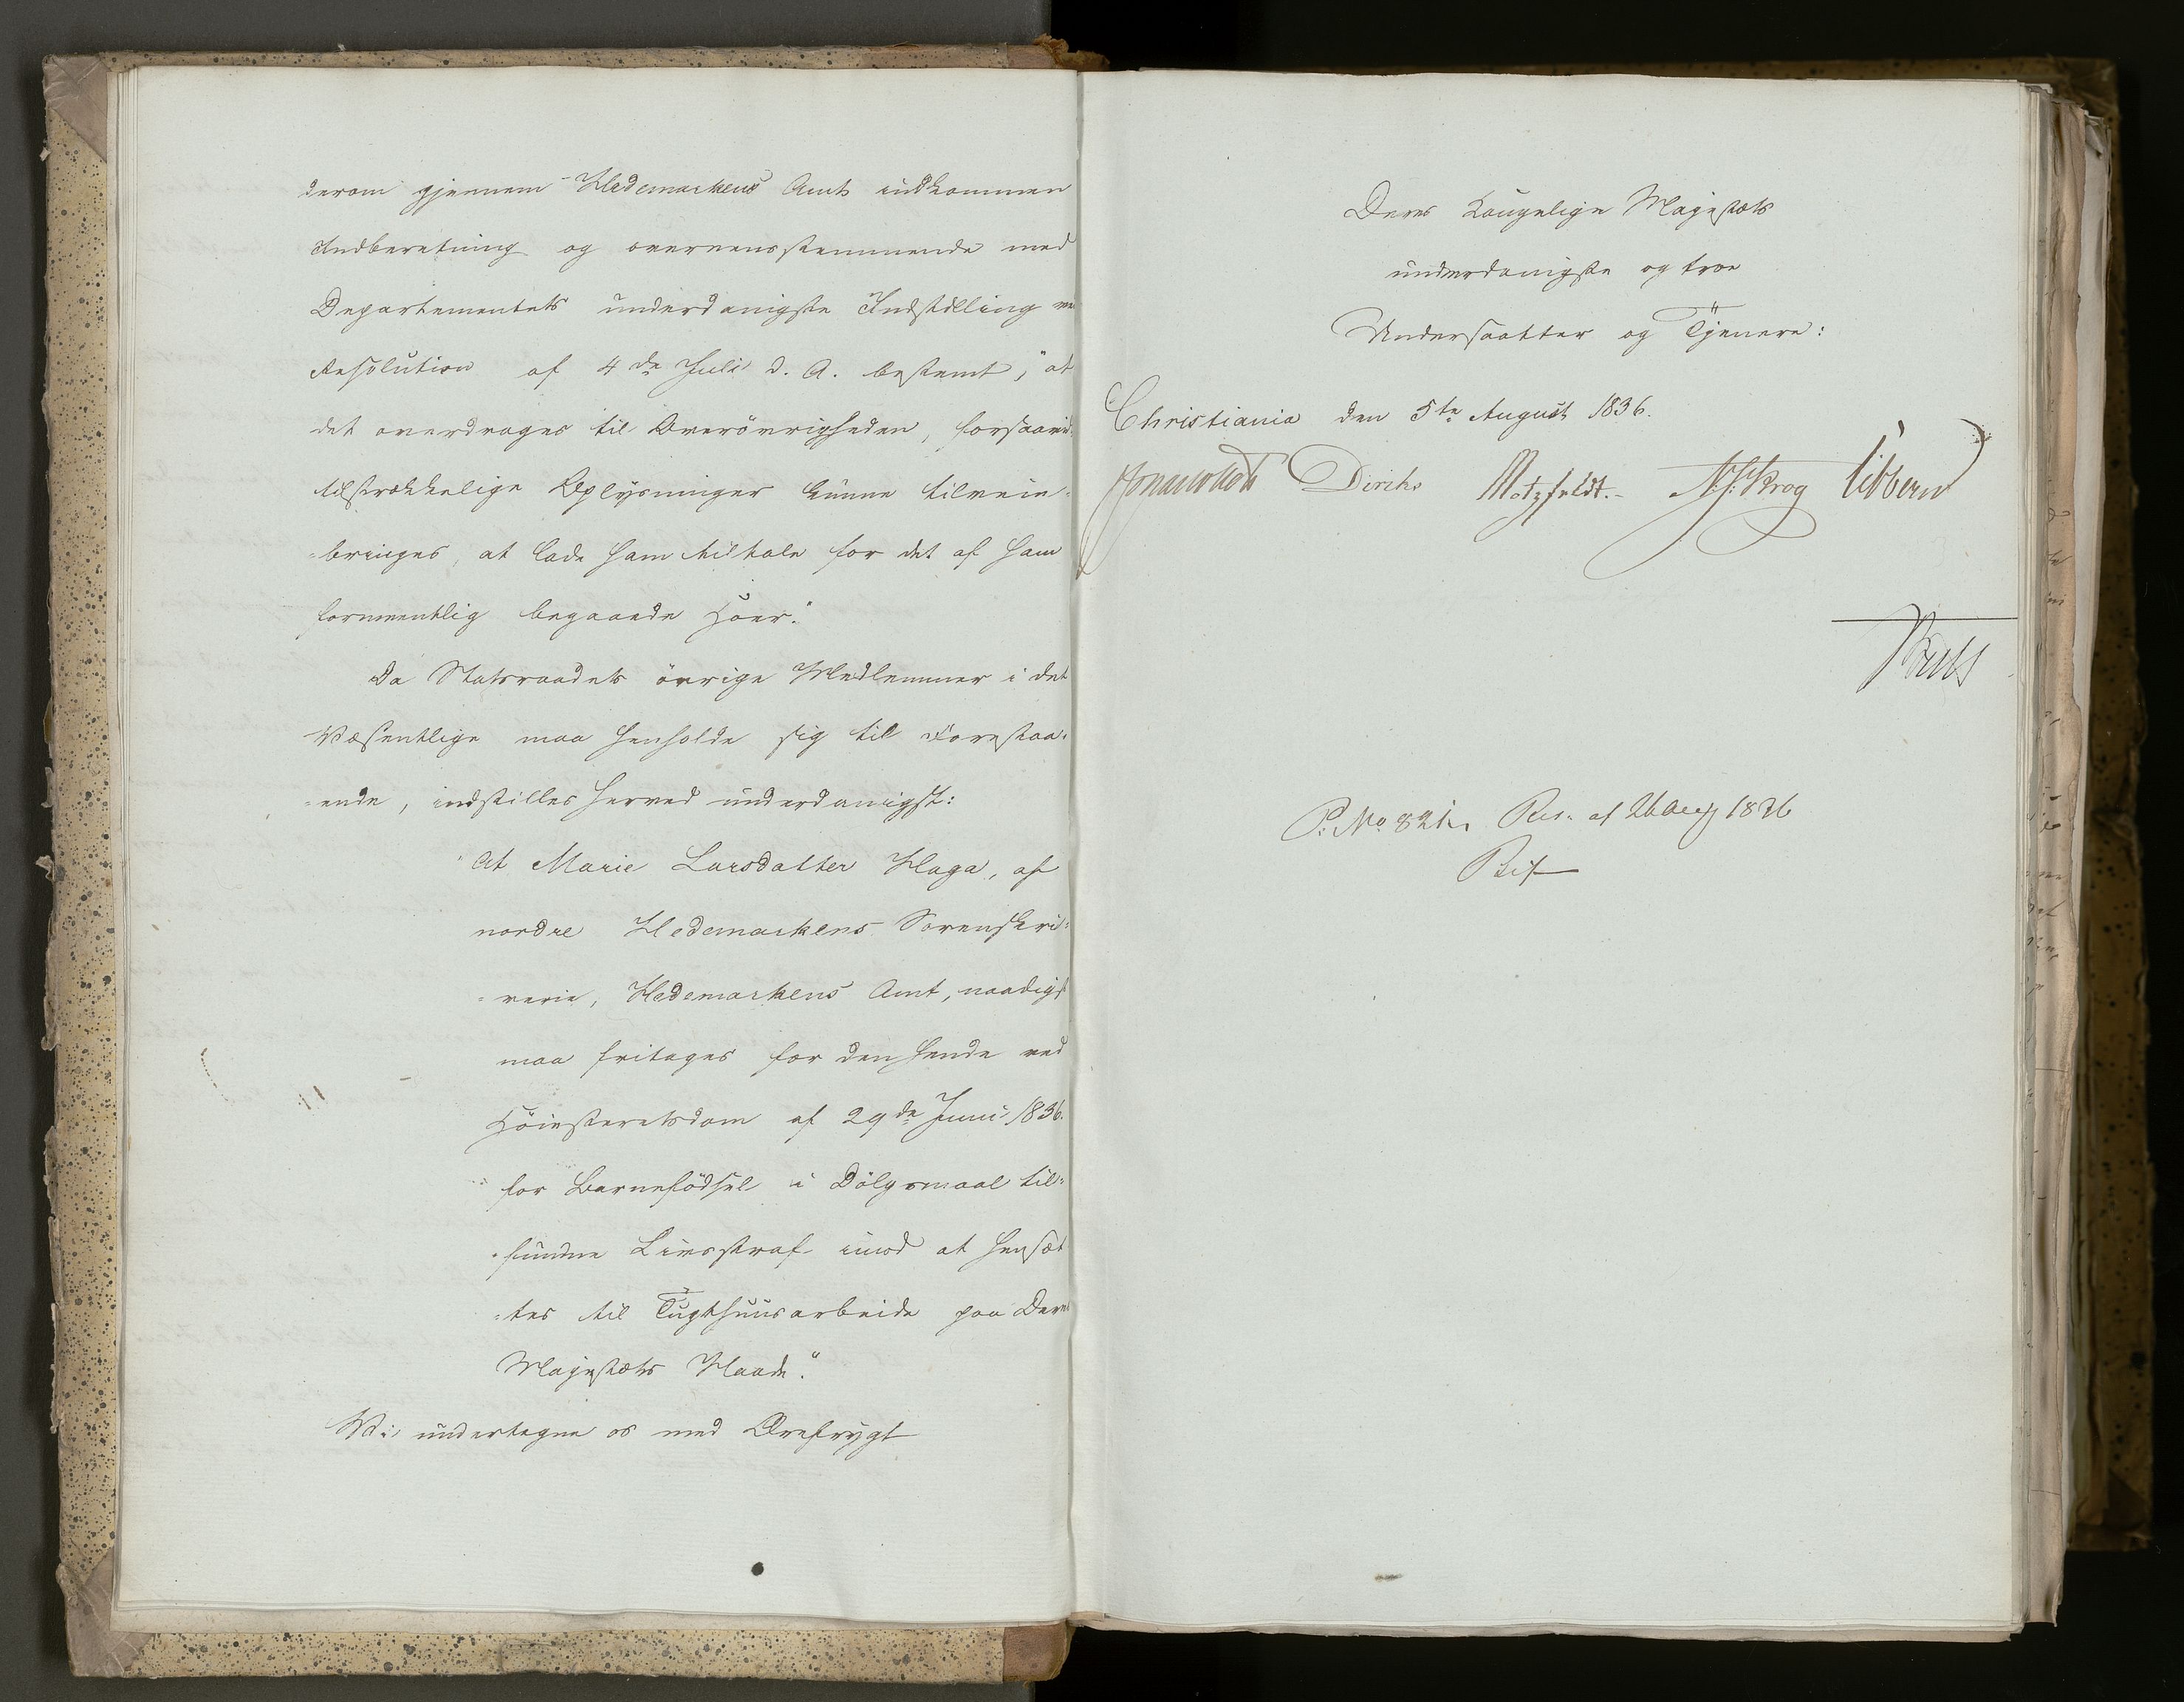 derom gjennem Hedemarkens Amt indkommen
Indberetning og overeensstemmende med
Departementets underdanigste Indstilling ve
Resolution af 4de Juli d. A. bestemt, "at
det overdrages til Overövrigheden, forsaavid
tilstrækkelige Oplysninger kunne tilveie-
-bringes, at lade ham tiltale for det af ham
formeentlig begaaede Hoer."
Da Statsraadets övrige Medlemmer i det
Væsentlige maa henholde sig til Forestaa-
-ende, indstilles herved underdanigst:
"At Marie Larsdatter Haga, af
nordre Hedemarkens Sorenskri-
-verie, Hedemarkens Amt, naadigst
maa fritages for den hende ved
Höiesteretsdom af 29de Juni 1836.
for Barnefödsel i Dölgsmaal til-
-fundne Livsstraf imod at hensæt
-tes til Tugthuusarbeide paa Deres
Majestæts Naade."
Vi undertegne os med Ærefrygt
Deres Kongelige Majestæts
underdanigste og troe
Undersaatter og Tjenere:
Christiania den 5te August 1836.
Jonas Collett Diriks Motzfeldt. N: Krog Sibbern
P: No. 821. Res. af 26 Aug 1836